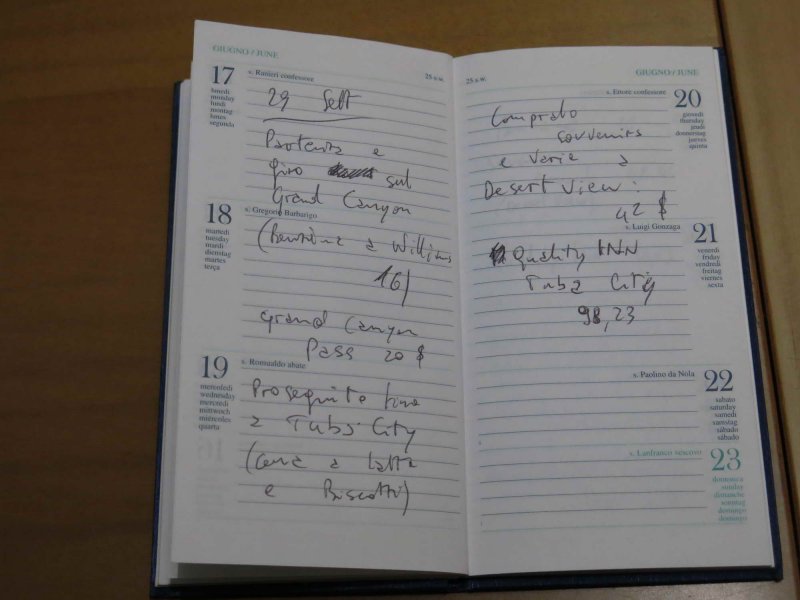 GIUGNO / JUNE
17
s. Ranieri confessore
25 s.w.
lunedì
monday
lundi
montag
lunes
segunda
29 Sett
Partenza e
giro sul
Grand Canyon
18
s. Gregorio Barbarigo
martedì
tuesday
mardi
dienstag
martes
terça
(benzina a Williams
16)
Grand Canyon
Pass 20 $
19
s. Romualdo abate
mercoledì
wednesday
mercredi
mittwoch
miércoles
quarta
Proseguito fino
a Tuba City
(cena a latte
e Biscotti)
25 s.w.
GIUGNO / JUNE
s. Ettore confessore
20
giovedì
thursday
jeudi
donnerstag
jueves
quinta
Comprato
souvenirs
e varie a
Desert View:
42 $
s. Luigi Gonzaga
21
venerdì
friday
vendredi
freitag
viernes
sexta
Quality INN
Tuba City
98,23
s. Paolino da Nola
22
sabato
saturday
samedi
samstag
sábado
sábado
s. Lanfranco vescovo
23
domenica
sunday
dimanche
sonntag
domingo
domingo